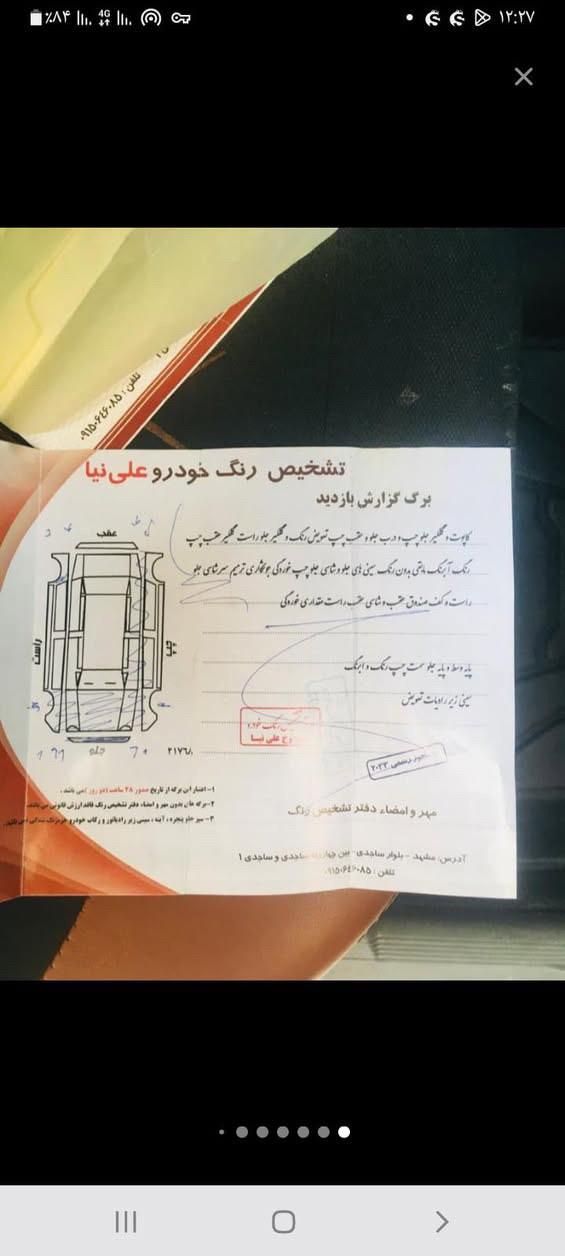 ٪۸۴ 4G ۱۲:۲۷
تلفن : ۰۹۱۵۰۶۴۶۰۸۵
تشخیص رنگ خودرو علی نیا
برگ گزارش بازدید
کاپوت و گلگیر جلو چپ و درب جلو و عقب چپ تعویض رنگ و گلگیر جلو راست گلگیر عقب چپ
رنگ آبرنگ مابقی بدون رنگ سینی های جلو و شاسی جلو چپ خوردگی جوشکاری ترمیم سرشاسی جلو
راست و کف صندوق عقب و شاسی عقب راست مقداری خوردگی
پایه وسط و پایه جلو سمت چپ رنگ و آبرنگ
سینی زیر رادیات تعویض
عقب
راست
چپ
جلو
علی نیا
۲۰۲۳
۱-اعتبار این برگه از تاریخ صدور ۴۸ ساعت (دو روز) می باشد .
۲-برگه های بدون مهر و امضاء دفتر تشخیص رنگ فاقد ارزش قانونی می باشد.
مهر و امضاء دفتر تشخیص رنگ
آدرس: مشهد - بلوار ساجدی- بین چهارراه ساجدی و ساجدی ۱
تلفن : ۰۹۱۵۰۶۴۶۰۸۵